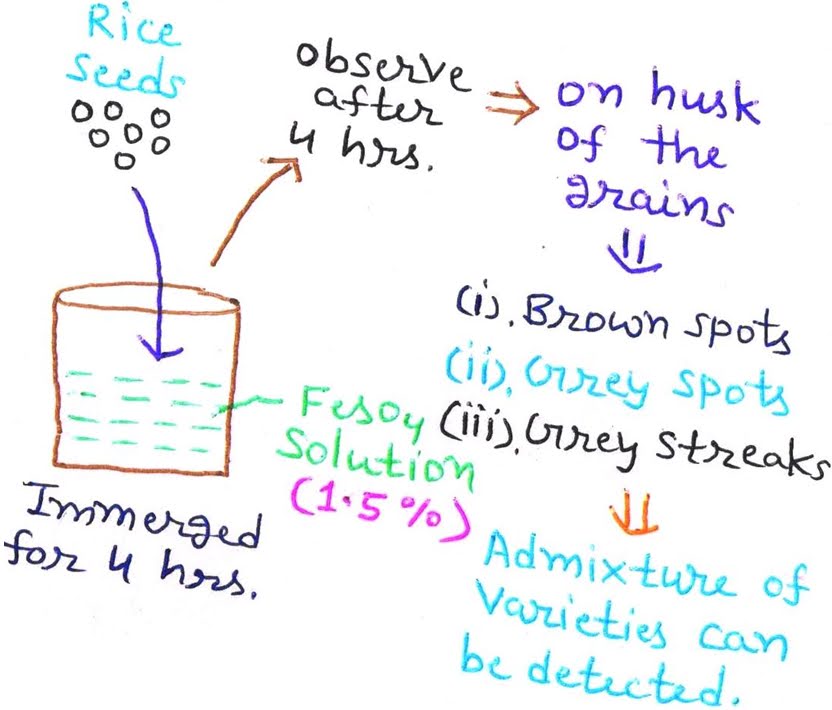 Rice
Seeds
observe
after
4 hrs.
on husk
of the
grains
(i). Brown spots
(ii). Grey spots
(iii). Grey streaks
FeSO4
Solution
(1.5%)
Immerged
for 4 hrs.
Admixture of
Varieties can
be detected.